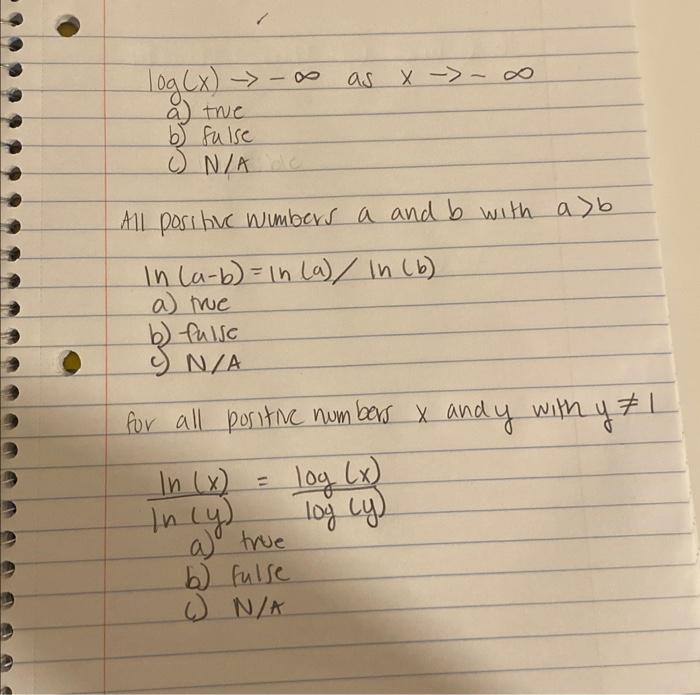 log(x) -> - ∞ as x -> - ∞
a) true
b) false
c) N/A
All positive numbers a and b with a>b
ln(a-b) = ln(a) / ln(b)
a) true
b) false
c) N/A
for all positive numbers x and y with y ≠ 1
ln(x) = log(x)
ln(y) log(y)
a) true
b) false
c) N/A